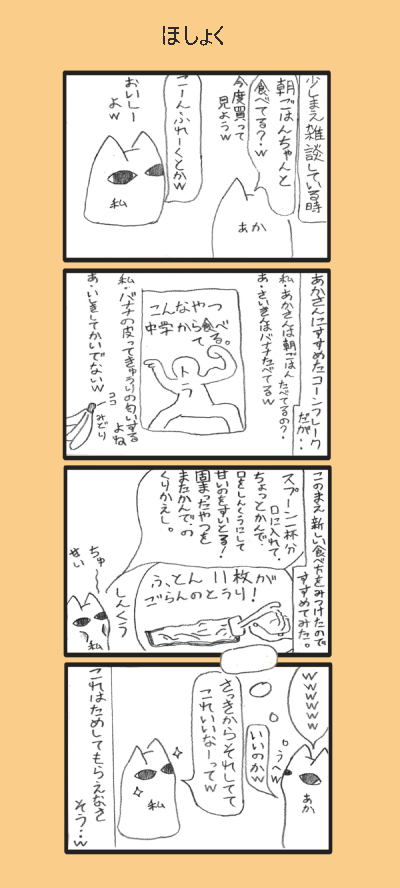 ほしょく
少しまえ雑談している時
朝ごはんちゃんと
食べてる？w
今度買って
見ようw
こーんふれーくとかw
おいしー
よw
あか
私
あかさんにすすめたコーンフレーク
だが‥
私・あかさんは朝ごはんたべてるの？・
あ・さいきんはバナナたべてるw
こんなやつ
中学から食べ
てる。
トラ
私・バナナの皮ってきゅうりの匂いする
よね
あ・いきしてかいでないw
ココ
みどり
このまえ新しい食べ方をみつけたので
すすめてみた。
スプーン一杯分
口に入れて
ちょっとかんで、
口をしんくうにして
甘いのをすいとる！
固まったやつを
またかんで・の
くりかえし。
ふとん11枚が
ごらんのとうり！
しんくう
ちゅ
せい
私
wwwwww
うへw
いいのかw
あか
さっきからそれしてて
これいいなーってw
私
これはためしてもらえなさ
そう‥w